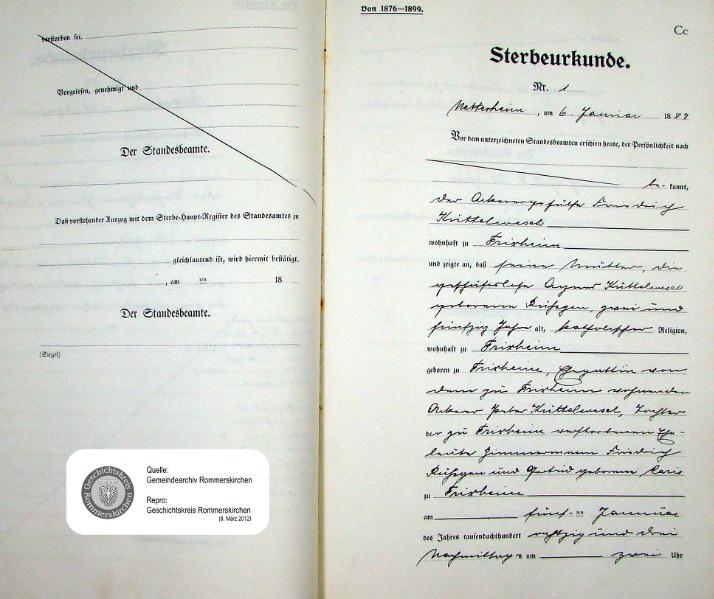 verstorben sei.
Vorgelesen, genehmigt und
Der Standesbeamte.
Daß vorstehender Auszug mit dem Sterbe-Haupt-Register des Standesamtes zu
gleichlautend ist, wird hiermit bestätigt.
, am ten 18
Der Standesbeamte.
(Siegel)
Geschichtskreis Rommerskirchen
Quelle:
Gemeindearchiv Rommerskirchen
Repro:
Geschichtskreis Rommerskirchen
(8. März 2012)
Von 1876—1899.
Cc
Sterbeurkunde.
Nr. 1
am 6. Januar 18
Vor dem unterzeichneten Standesbeamten erschien heute, der Persönlichkeit nach
be- kannt,
der Ackergehülfe Friedrich
Küttelwesch
wohnhaft zu Frixheim
und zeigte an, daß seine Mutter, die
geschäftslose Agnes Küttelwesch
geborene Rüsgen, zwei und
fünfzig Jahre alt, katholischer Religion,
wohnhaft zu Frixheim
geboren zu Frixheim, Ehegattin von
dem zu Frixheim wohnenden
Ackerer Peter Küttelwesch, Tochter
der zu Frixheim verstorbenen Ehe-
leute Zimmermann Friedrich
Rüsgen und Gertrud geborenen
zu Frixheim
am fünften Januar
des Jahres tausendachthundert achtzig und drei
Nachmittags um zwei Uhr